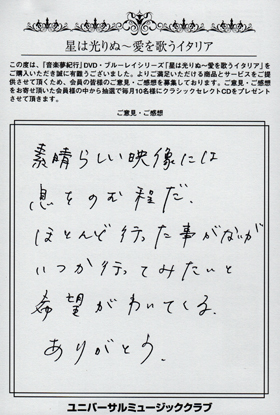 星は光りぬ～愛を歌うイタリア
この度は、「音楽夢紀行」DVD・ブルーレイシリーズ「星は光りぬ～愛を歌うイタリア」を
ご購入いただき誠に有難うございました。よりご満足いただける商品とサービスをご提
供させて頂くため、会員の皆様のご意見・ご感想を募集しております。ご意見・ご感想
をお寄せ頂いた会員様の中から抽選で毎月10名様にクラシックセレクトCDをプレゼント
させて頂きます。
ご意見・ご感想
素晴らしい映像には
息をのむ程だ。
ほとんど行った事がないが
いつか行ってみたいと
希望がわいてくる。
ありがとう。
ユニバーサルミュージッククラブ